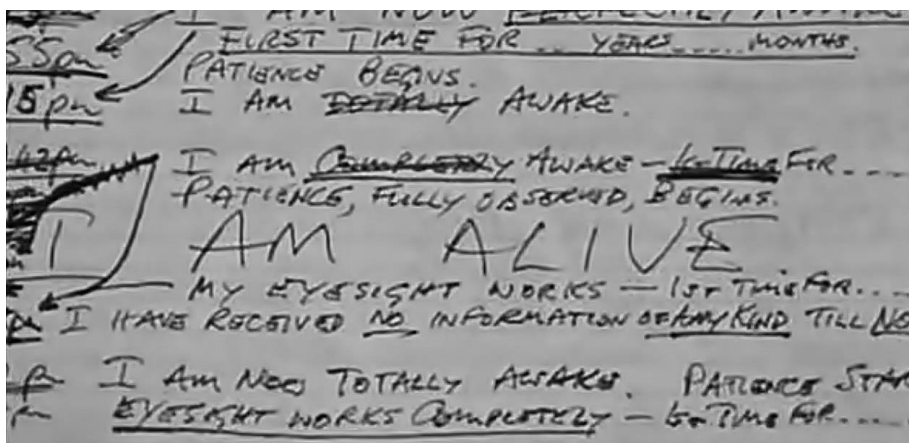 I AM NOW PERFECTLY AWAKE
55pm FIRST TIME FOR .... YEARS ..... MONTHS.
PATIENCE BEGINS.
15pm I AM TOTALLY AWAKE.
42pm I AM COMPLETELY AWAKE – 1st TIME FOR....
PATIENCE, FULLY OBSERVED, BEGINS.
I AM ALIVE
MY EYESIGHT WORKS – 1st TIME FOR....
I HAVE RECEIVED NO INFORMATION OF ANY KIND TILL NO
I AM NOW TOTALLY AWAKE. PATIENCE STAR
EYESIGHT WORKS COMPLETELY – 1st TIME FOR....